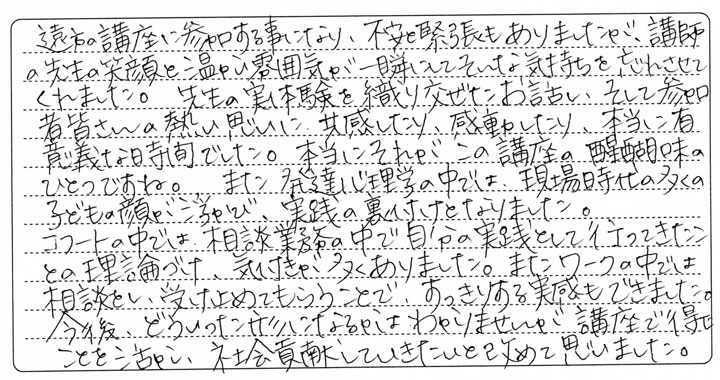 遠方の講座に参加する事になり、不安と緊張もありましたが、講師
の先生の笑顔と温かい雰囲気が一瞬にしてそんな気持ちを忘れさせて
くれました。先生の実体験を織り交ぜたお話し、そして参加
者皆さんの熱い思いに共感したり、感動したり、本当に有
意義な時間でした。本当にそれがこの講座の醍醐味の
ひとつですね。また発達心理学の中では現場時代の多くの
子どもの顔がうかび、実践の裏付けとなりました。
コフートの中では相談業務の中で自分の実践として行ってきたこ
との理論づけ、気付きが多くありました。またワークの中では
相談とし、受け止めてもらうことで、すっきりする実感もできました。
今後、どういった形になるかはわかりませんが講座で得た
ことを活かし、社会貢献していきたいと改めて思いました。